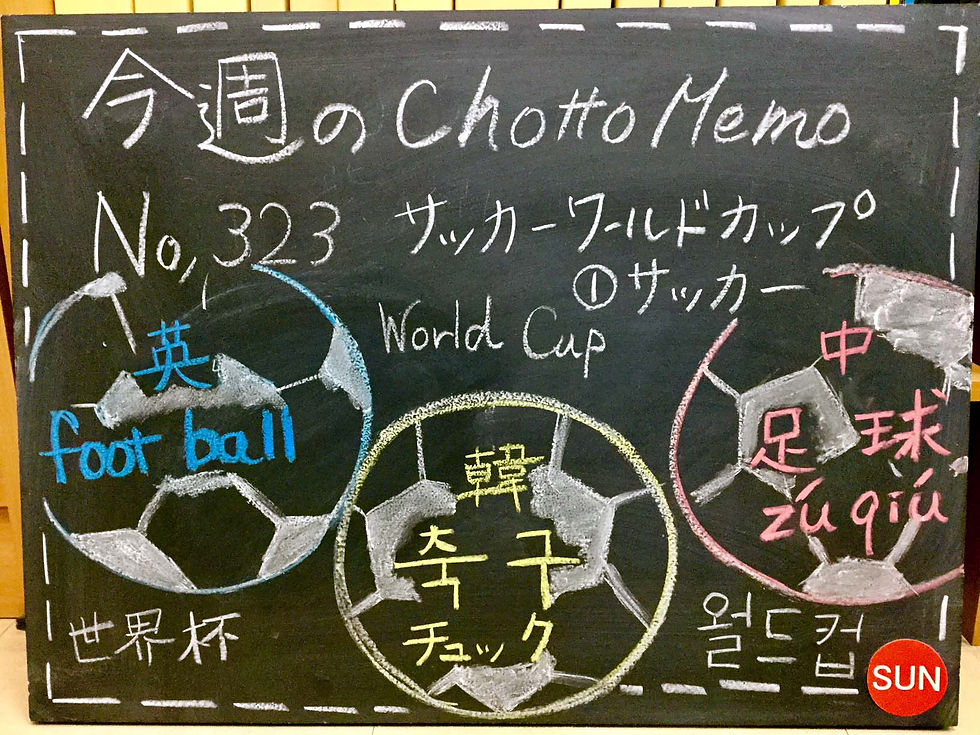 今週のChotto Memo
No,323 サッカーワールドカップ
①サッカー
World Cup
英
foot ball
韓
축구
チュック
中
足球
zú qiú
世界杯
월드컵
SUN